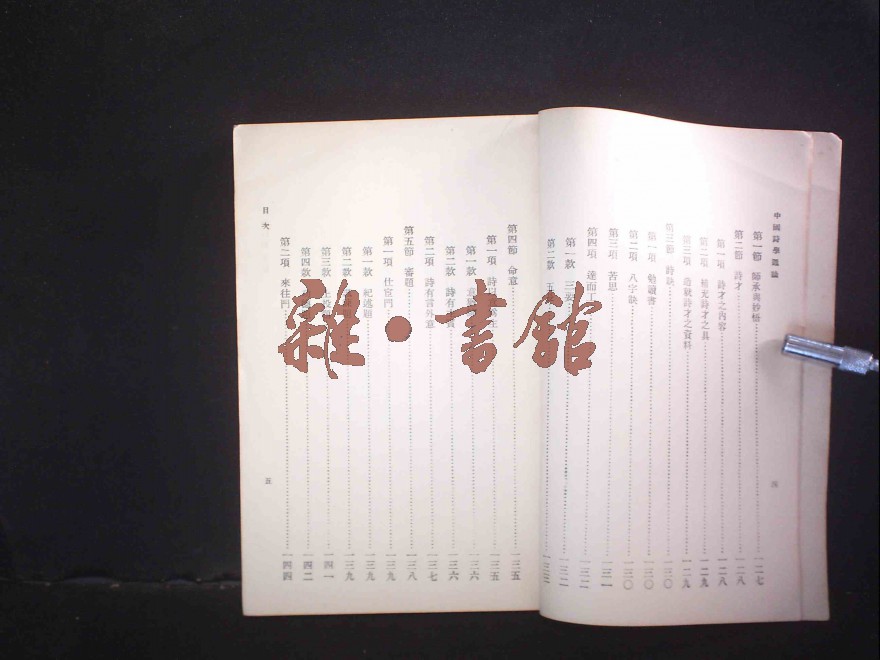 中國詩學通論
第一節 師承與妙悟 一二七
第二節 詩才 一二八
第一項 詩才之內容 一二八
第二項 充詩才之具 一二九
第三項 詩才之資料 一二九
第三節 詩訣 一三〇
第一項 勉讀書 一三〇
第二項 八字訣 一三〇
第三項 苦思 一三一
第四項 達而 一三二
第一款 三 一三二
第二款 五 一三三
四
第四節 命意 一三五
第一項 詩 一三五
第一款 意 一三六
第二款 詩有 一三六
第二項 詩有言外意 一三七
第五節 審題 一三八
第一項 仕宦門 一三九
第一款 紀述題 一三九
第二款 一三九
第三款 上 一四一
第四款 一四二
第二項 來往門 一四四
目次
五
雜•書館